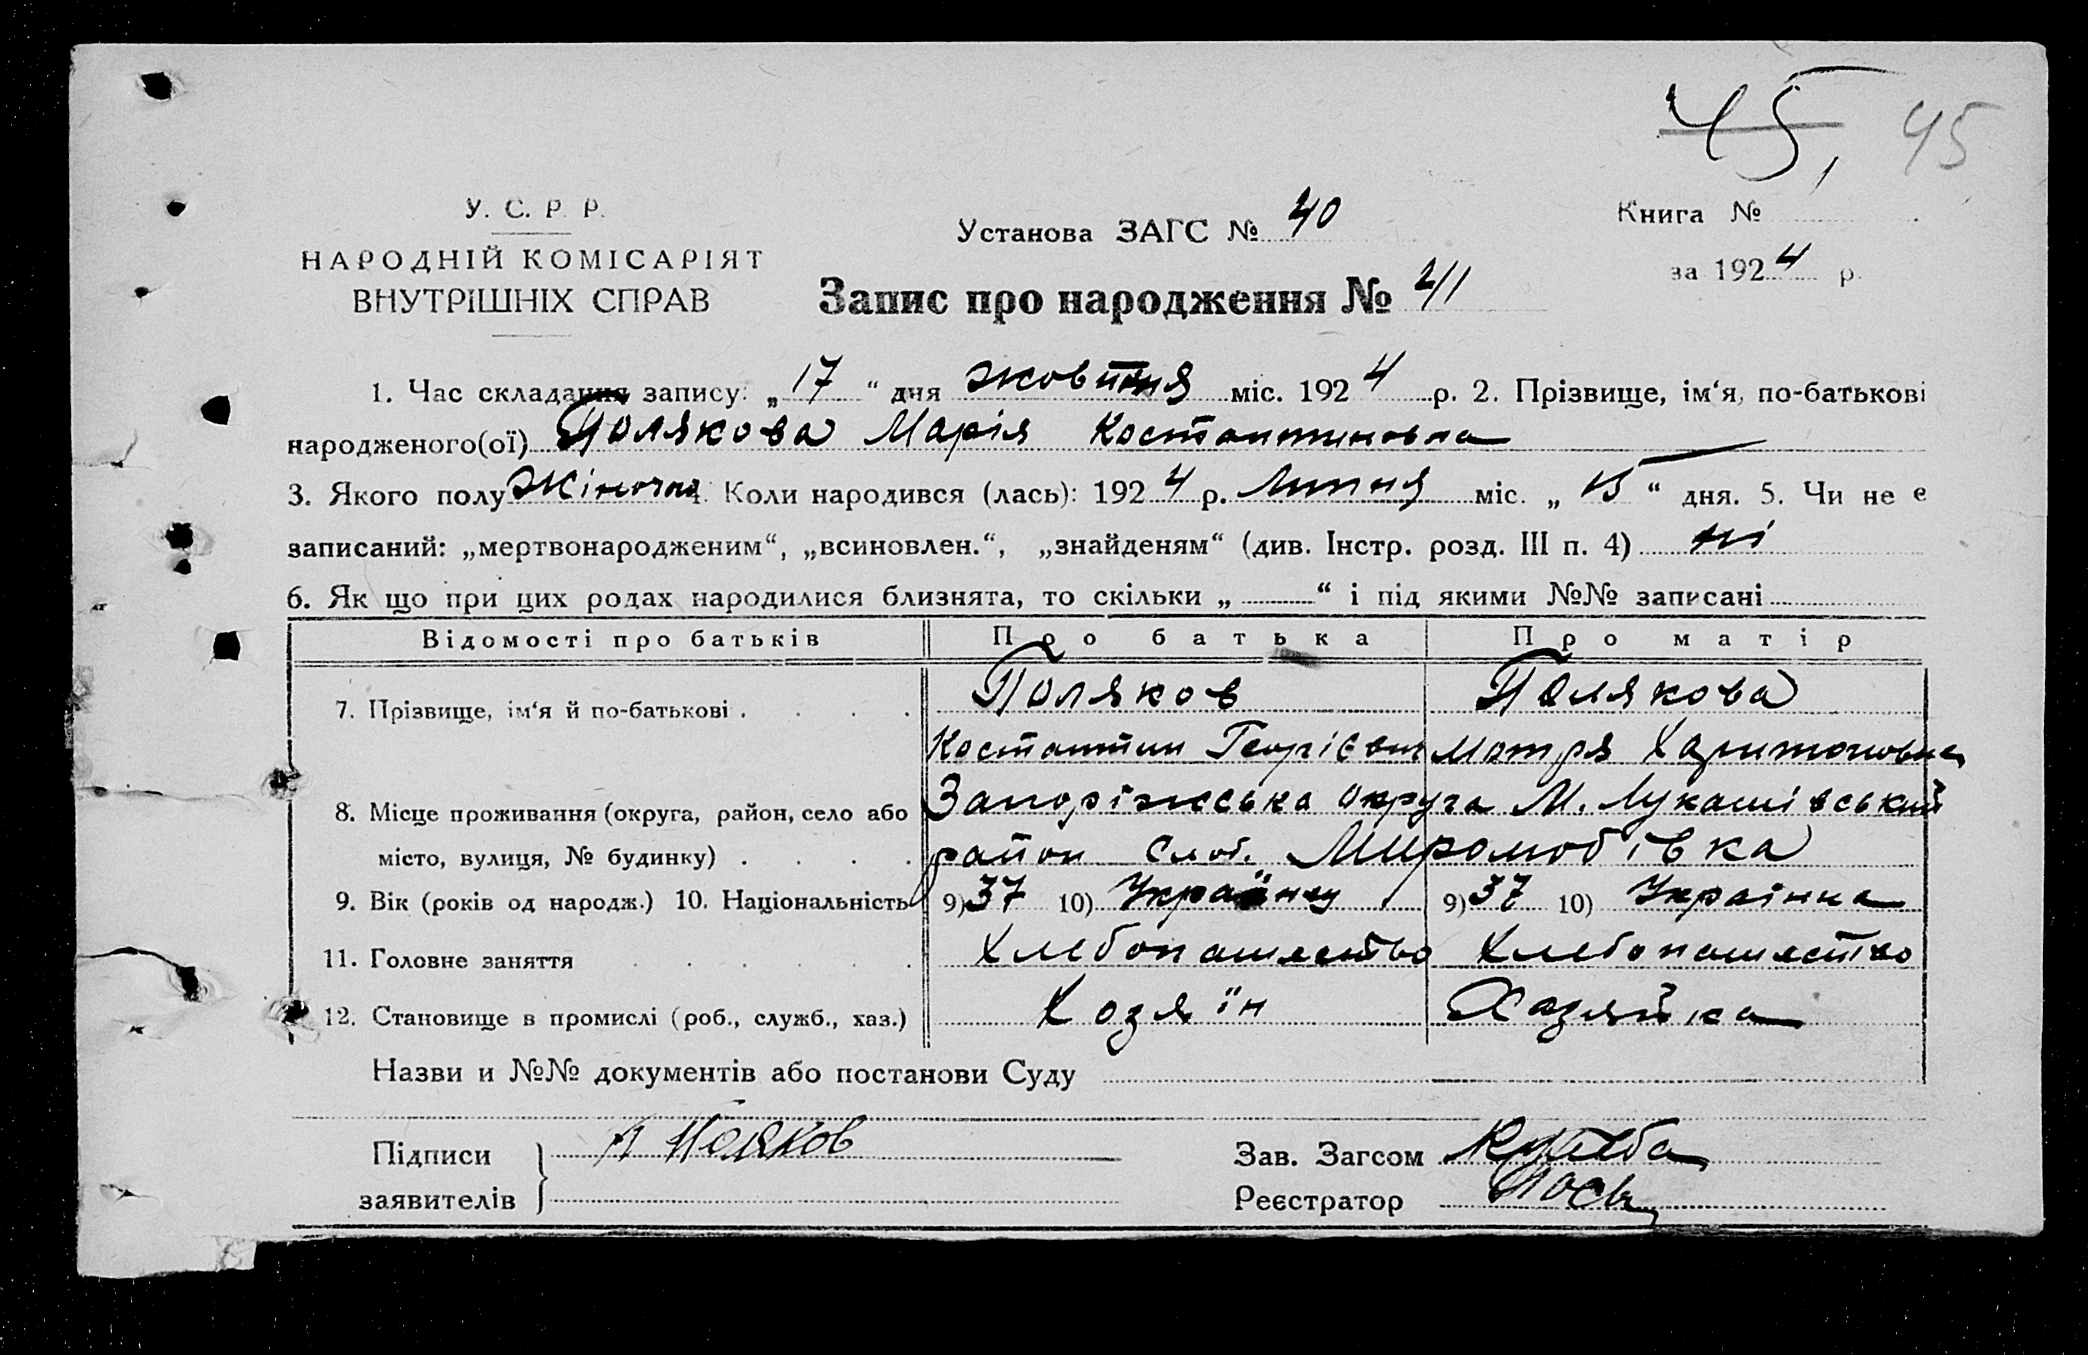 45, 45
У. С. Р. Р.
НАРОДНІЙ КОМІСАРІЯТ
ВНУТРІШНІХ СПРАВ
Установа ЗАГС № 40
Книга №
за 1924 р.
Запис про народження № 41
1. Час складання запису: „ 17 “ дня жовтня міс. 1924 р. 2. Прізвище, ім‘я, по-батькові
народженого(ої) Полякова Марія Костантиновна
3. Якого полу Жіночої 4. Коли народився (лась): 1924 р. Липня міс. „ 15 “ дня. 5. Чи не є
записаний: „мертвонародженим“, „всиновлен.“, „знайденям“ (див. Інстр. розд. III п. 4) ні
6. Як що при цих родах народилися близнята, то скільки „ “ і під якими №№ записані
Відомості про батьків Про батька Про матір
7. Прізвище, ім‘я й по-батькові . . . . Поляков Полякова
Костантин Георгієвич Мотря Харитоновна
8. Місце проживання (округа, район, село або Запоріжська округа М. Лукашівський
місто, вулиця, № будинку) . . . . район Слоб. Миролюбівка
9. Вік (років од народж.) 10. Національність 9) 37 10) Українец 9) 37 10) Украінка
11. Головне заняття . . . . . . Хлебопашество Хлебопашество
12. Становище в промислі (роб., служб., хаз.) Хозяїн Хазяйка
Назви и №№ документів або постанови Суду
Підписи
заявителів
Поляков
Зав. Загсом
Реєстратор